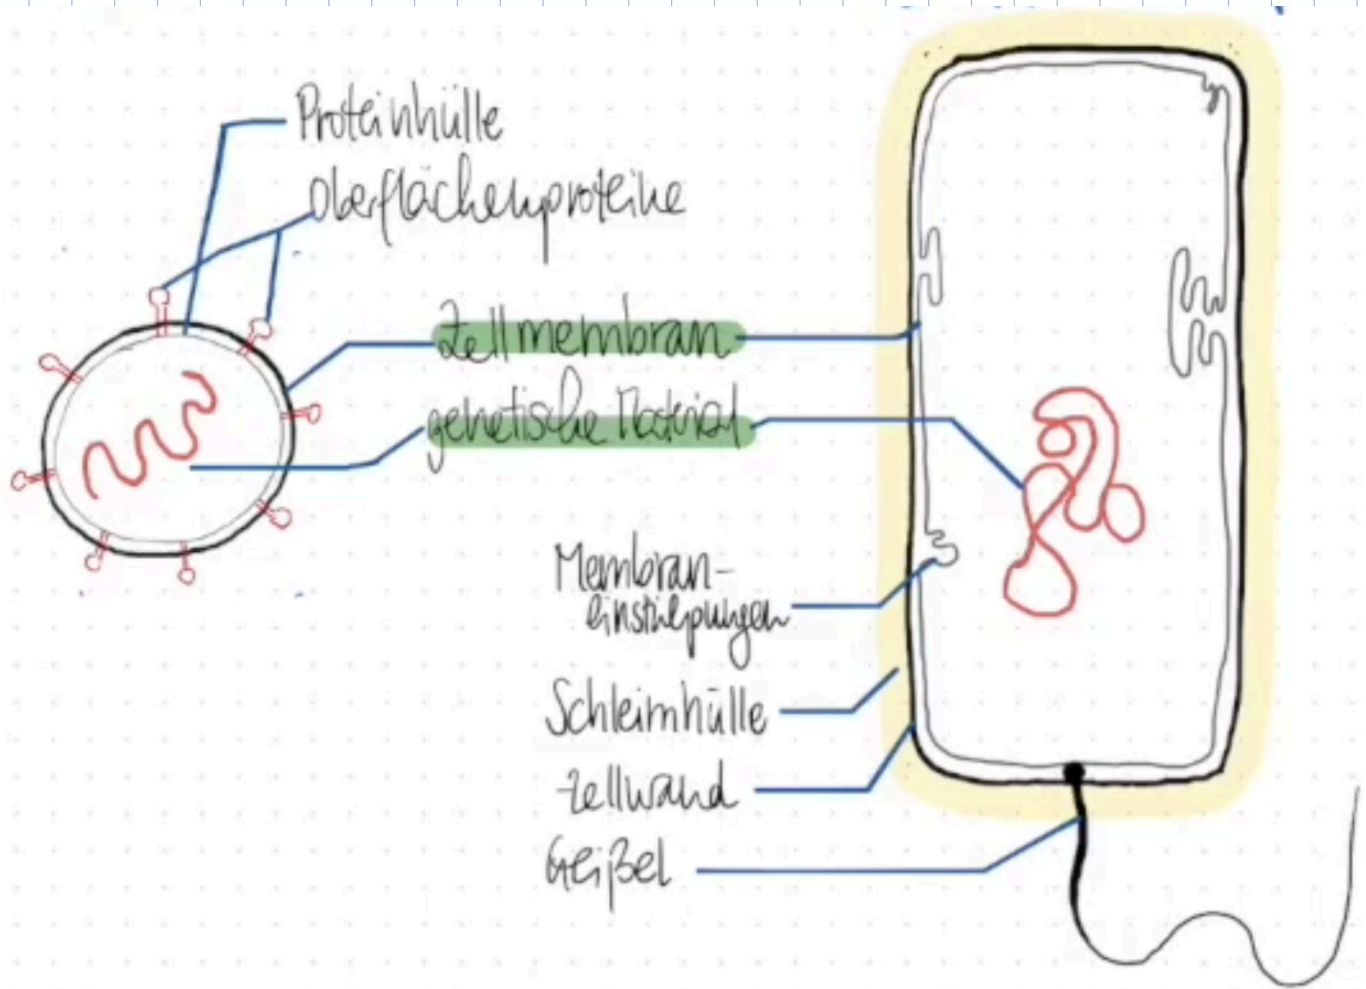 Proteinhülle
Oberflächenproteine
Zellmembran
genetische Material
Membran-
einstülpungen
Schleimhülle
Zellwand
Geißel